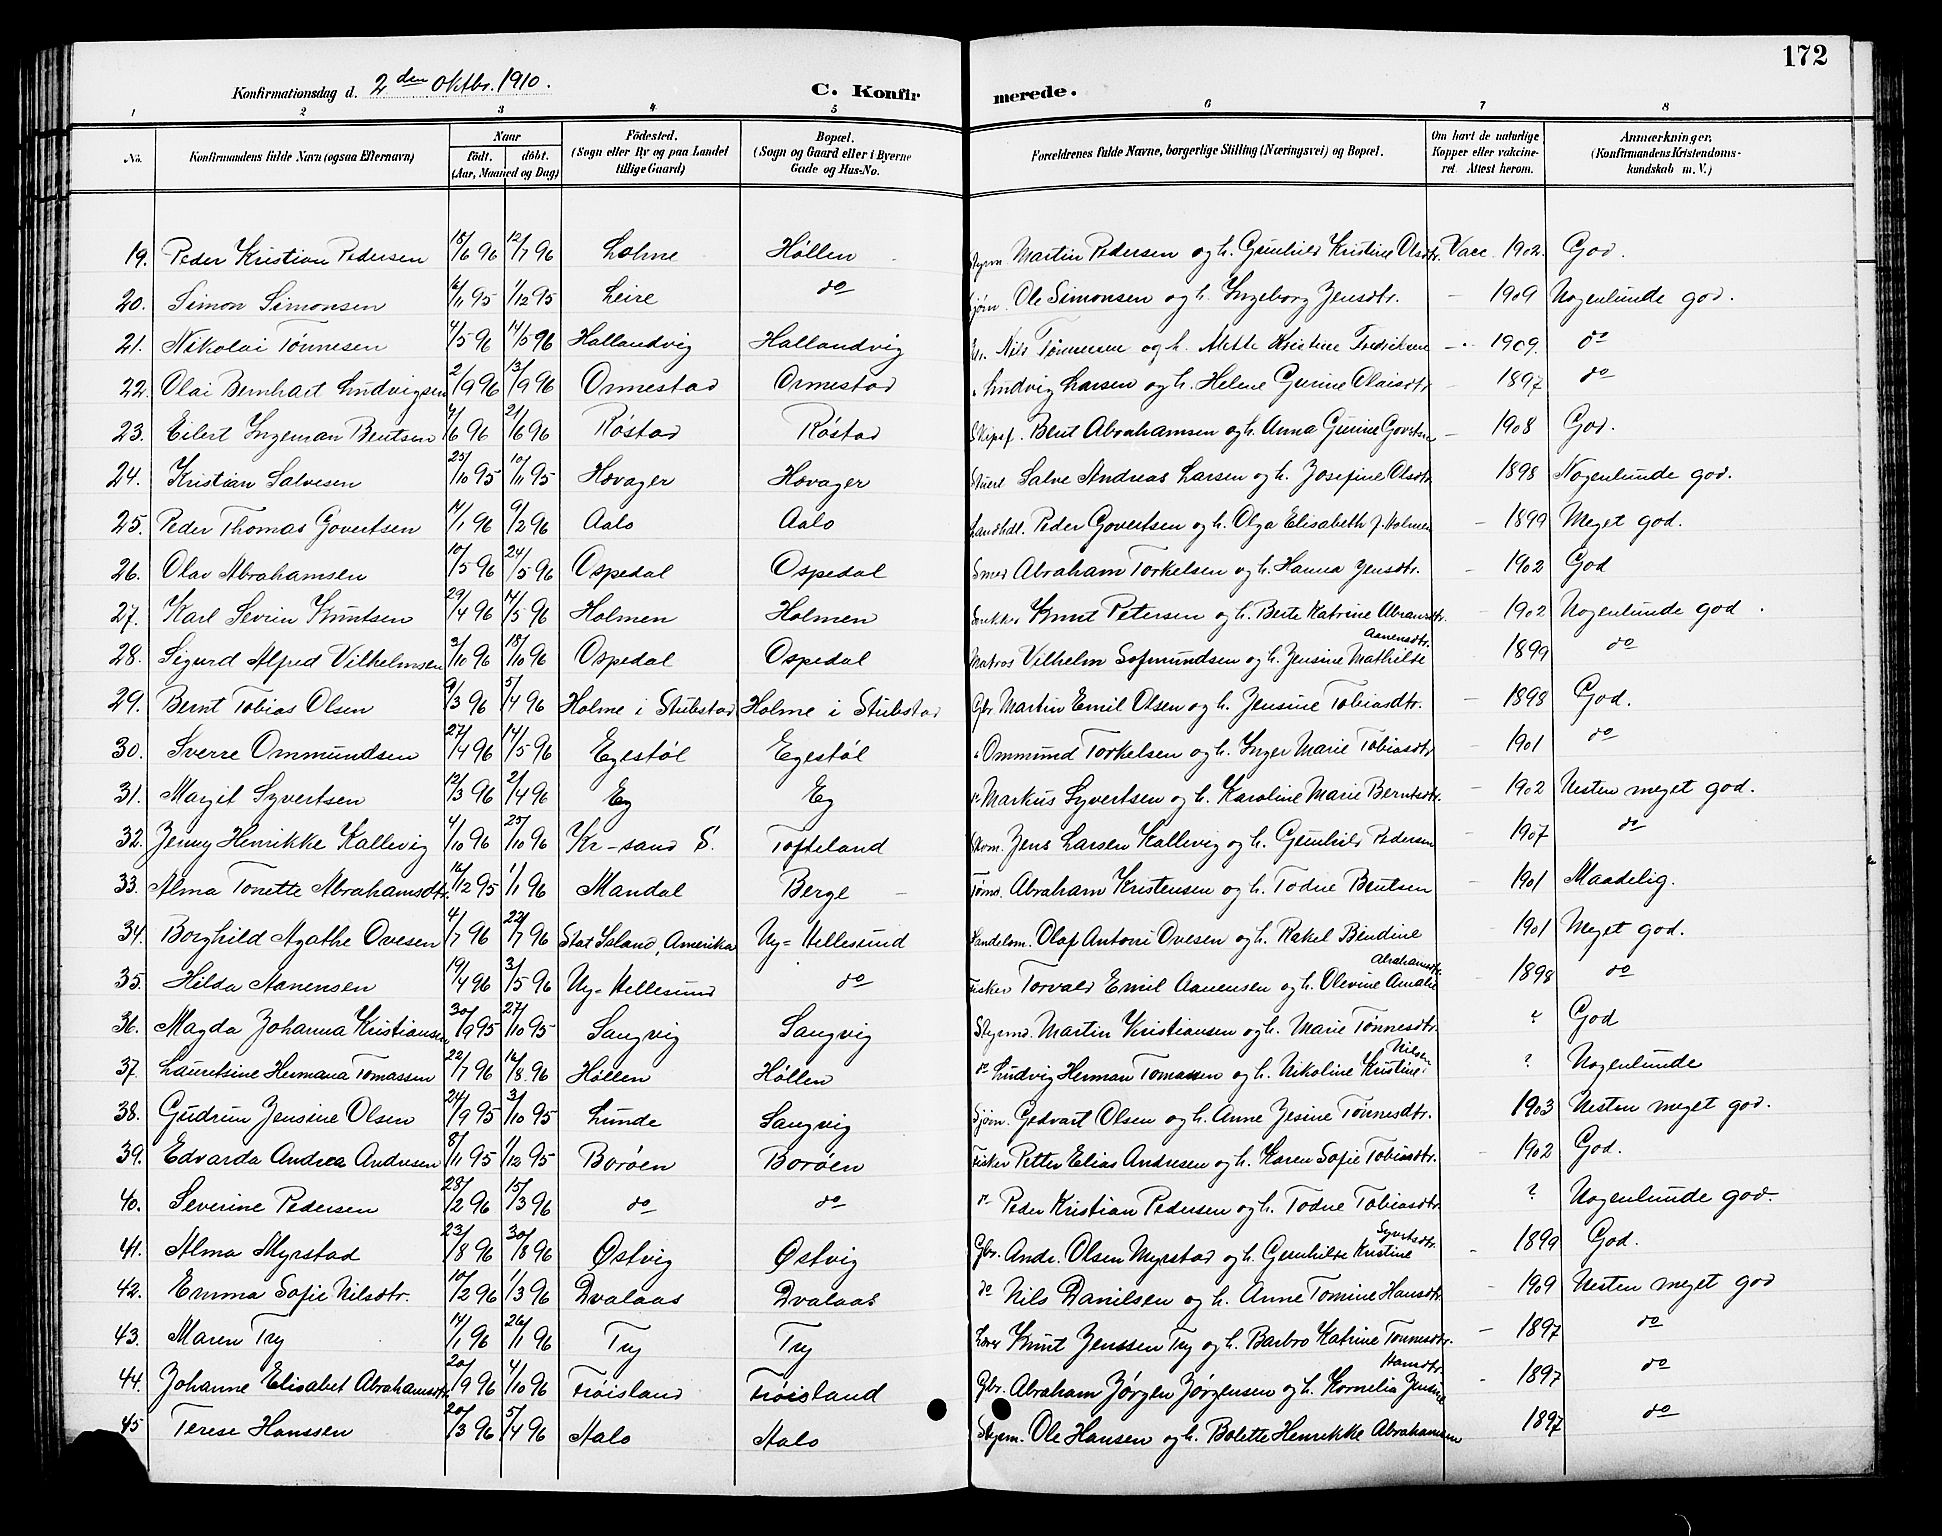 172
Konfirmationsdag d. 2den Oktbr. 1910. C. Konfirmerede.
1 2 3 4 5 6 7 8
No. Konfirmandens fulde Navn (ogsaa Efternavn) Naar födt. döbt. (Aar, Maaned og Dag) Födested. (Sogn eller By og paa Landet tillige Gaard) Bopæl. (Sogn og Gaard eller i Byerne Gade og Hus-No. Forældrenes fulde Navne, borgerlige Stilling (Næringsvei) og Bopæl. Om havt de naturlige Kopper eller vakcineret. Attest herom. Anmærkninger. (Konfirmandens Kristendomskundskab m. V.)
19. Peder Kristian Pedersen 18/6 96 12/7 96 Lohne Höllen Styrm Martin Pedersen og h. Gunhild Kristine Olsdtr. Vacc. 1902. God.
20. Simon Simonsen 6/11 95 1/12 95 Leire do Sjöm. Ole Simonsen og h. Ingeborg Jensdtr. - 1909 Nogenlunde god.
21. Nikolai Tönnesen 4/5 96 14/5 96 Hallandvig Hallandvig Nils Tönnesen og h. Mette Kristine Fredriksen - 1909. do
22. Olai Bernhart Ludvigsen 2/9 96 13/9 96 Ormestad Ormestad Ludvig Larsen og h. Helene Gurine Olaisdtr - 1897 do
23. Eilert Ingeman Bentsen 4/6 96 21/6 96 Röstad Röstad Skipsf. Bent Abrahamsen og h. Anna Gurine Govertsen - 1908 God.
24. Kristian Salvesen 25/10 95 10/11 95 Hovager Hovager Salve Andreas Larsen og h. Josefine Olsdtr 1898 Nogenlunde god.
25. Peder Thomas Govertsen 14/1 96 9/2 96 Aalo Aalo Landhdl. Peder Govertsen og h. Olga Elisabeth f. Holmen - 1899 Meget god.
26. Olav Abrahamsen 10/5 96 24/5 96 Ospedal Ospedal Smed Abraham Torkelsen og h. Hanna Jensdtr. - 1902 God
27. Karl Severin Knutsen 29/4 96 14/5 96 Holmen Holmen Knut Petersen og h. Berte Katrine Abramsdtr. - 1902 Nogenlunde god.
28. Sigurd Alfred Vilhelmsen 3/10 96 18/10 96 Ospedal Ospedal Matros Vilhelm Sofmundsen og h. Jensine Mathilde Aanensdtr. 1899 do
29. Bernt Tobias Olsen 9/3 96 5/4 96 Holme i Stubstad Holme i Stubstad Gbr Martin Emil Olsen og h. Jensine Tobiasdtr. - 1898 God.
30. Sverre Ommundsen 27/4 96 14/5 96 Egestöl Egestöl Ommund Torkelsen og h. Inger Marie Tobiasdtr - 1901 do
31. Margit Syvertsen 12/3 96 2/4 96 Eg Eg do Markus Syvertsen og h. Karoline Marie Berntsdtr. - 1902 Nesten meget god.
32. Jenny Henrikke Kallevig 4/10 96 25/10 96 Kr-sand S. Tofteland Jens Larsen Kallevig og h. Gunhild Pedersen - 1907 do
33. Alma Tonette Abrahamsdtr. 16/12 95 1/1 96 Mandal Berge Tömd. Abraham Kristensen og h. Todne Bentsen - 1901 Maadelig.
34. Borghild Agathe Ovesen 4/7 96 22/7 96 Stat Island, Amerika Ny=Hellesund Handelsm. Olaf Antoni Ovesen og h. Rakel Bendine 1901 Meget god.
35. Hilda Aanensen 19/4 96 3/5 96 Ny=Hellesund do Fisker Torvald Emil Aanensen og h. Olevine Amalie Abrahamsdtr. - 1898 do
36. Magda Johanna Kristiansen 30/9 95 27/10 95 Sangvig Sangvig Styrmd. Martin Kristiansen og h. Marie Tönnesdtr. ? God
37. Lauretsine Hermana Tomassen 22/7 96 16/8 96 Höllen Höllen do Ludvig Herman Tomassen og h. Nikoline Kristine Nilsen ? Nogenlunde
38. Gudrun Jensine Olsen 24/9 95 3/10 95 Lunde Sangvig Sjöm. Gedvart Olsen og h. Anne Jesine Tönnesdtr. 1903 Nesten meget god.
39. Edvarda Andrea Andresen 8/11 95 1/12 95 Boröen Boröen Fisker Petter Elias Andresen og h. Karen Sofie Tobiasdtr. - 1902 God.
40. Severine Pedersen 28/2 96 15/3 96 do do do Peder Kristian Pedersen og h. Todne Tobiasdtr ? Nogenlunde god.
41. Alma Myrstad 23/8 96 30/8 96 Østvig Østvig Gbr. Andr. Olsen Myrstad og h. Gunhilde Kristine Syvertsdtr. - 1899 God.
42. Emma Sofie Nilsdtr. 10/2 96 1/3 96 Dvalaas Dvalaas do Nils Danilsen og h. Anne Tomine Hansdtr - 1909 Nesten meget god
43. Maren Try 14/1 96 26/1 96 Try Try Knut Jenssen Try og h. Barbro Katrine Tönnesdtr. - 1897 do
44. Johanne Elisabet Abrahamsdtr 20/9 96 4/10 96 Fröisland Fröisland Gbr. Abraham Jörgen Jörgensen og h. Kornelia Jensine Hansdtr - 1897 do
45 Terese Hanssen 20/3 96 5/4 96 Aalo Aalo Styrm. Ole Hansen og h. Bolette Henrikke Abrahamsen 1897 do